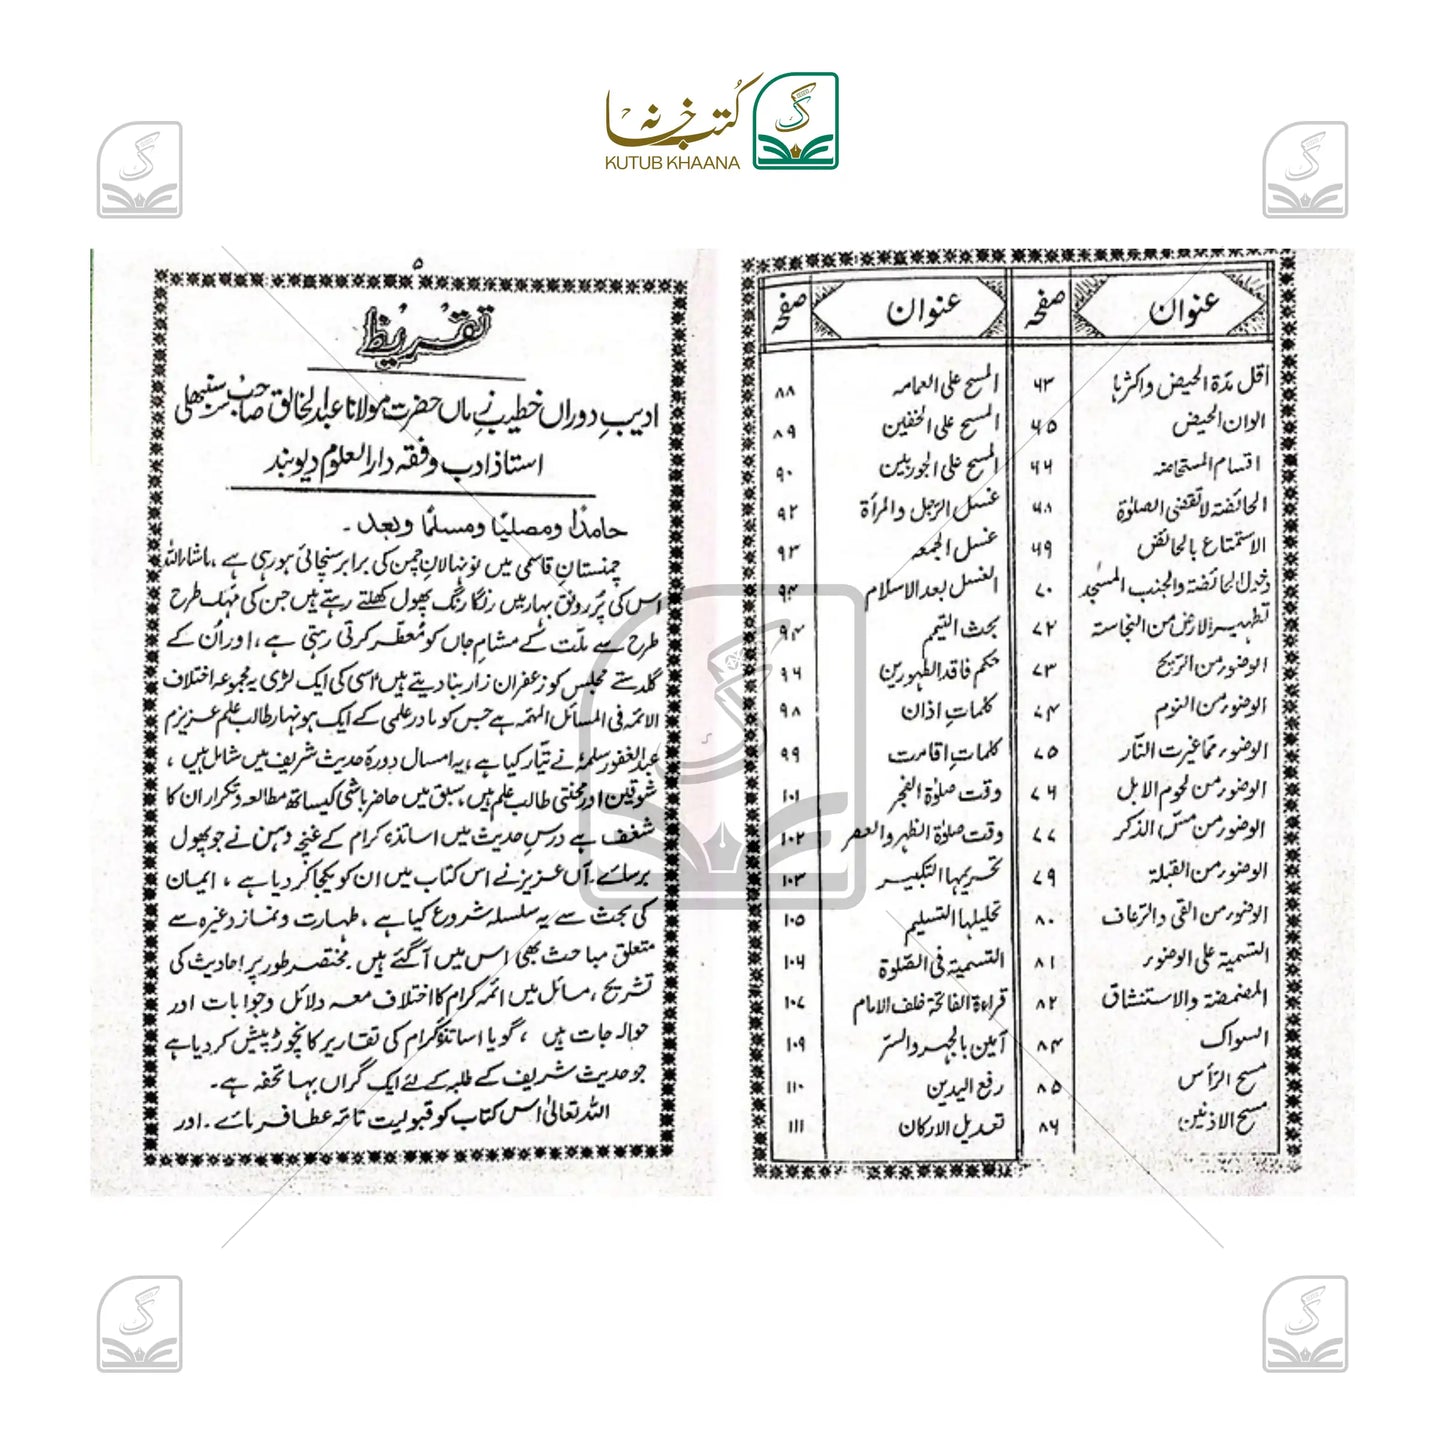 کتب خانہ
KUTUB KHAANA
عنوان صفحہ عنوان صفحہ
اقل مدة الحیض واکثرہا ۶۳ المسح علی العمامہ ۸۸
الوان الحیض ۶۵ المسح علی الخفین ۸۹
اقسام المستحاضہ ۶۶ المسح علی الجوربین ۹۰
الحائضة لا تقضی الصلوٰة ۶۸ غسل الرجل والمرأة ۹۲
الاستمتاع بالحائض ۶۹ غسل الجمعہ ۹۳
دخول الحائضة والجنب المسجد ۷۰ الغسل بعد الاسلام ۹۴
تطہیر الارض من النجاستہ ۷۲ بحث التیمم ۹۴
الوضور من الریح ۷۳ حکم فاقد الطہورین ۹۶
الوضور من النوم ۷۴ کلماتِ اذان ۹۸
الوضور مما غیرت النار ۷۵ کلماتِ اقامت ۹۹
الوضور من لحوم الابل ۷۶ وقت صلوٰة الفجر ۱۰۱
الوضور من مس الذکر ۷۷ وقت صلوٰة الظہر والعصر ۱۰۲
الوضور من القبلة ۷۹ تحریمہا التکبیر ۱۰۳
الوضور من القی والرعاف ۸۰ تحلیلہا التسلیم ۱۰۵
التسمیة علی الوضور ۸۱ التسمیة فی الصلوٰة ۱۰۶
المضمضة والاستنشاق ۸۲ قراءة الفاتحة خلف الامام ۱۰۷
السواک ۸۴ آمین بالجہر والسر ۱۰۹
مسح الرأس ۸۵ رفع الیدین ۱۱۰
مسح الاذنین ۸۶ تعدیل الارکان ۱۱۱
۵
تقریظ
ادیبِ دوراں خطیبِ زماں حضرت مولانا عبد الخالق صاحب سنبھلی
استاذ ادب وفقہ دار العلوم دیوبند
حامدًا ومصلیًا ومسلمًا وبعد۔
چمنستانِ قاسمی میں نونہالانِ چمن کی برابر سنچائی ہو رہی ہے، ماشاراللہ
اس کی پُر رونق بہار میں رنگا رنگ پھول کھلتے رہتے ہیں جن کی مہک طرح
طرح سے ملت کے مشامِ جاں کو معطر کرتی رہتی ہے، اور اُن کے
گلدستے مجلس کو زعفران زار بنا دیتے ہیں اسی کی ایک لڑی یہ مجموعہ اختلاف
الائمہ فی المسائل المہمہ ہے جس کو مادر علمی کے ایک ہونہار طالب علم عزیزم
عبد الغفور سلمہٗ نے تیار کیا ہے، یہ امسال دورۂ حدیث شریف میں شامل ہیں،
شوقین اور محنتی طالب علم ہیں، سبق میں حاضر باشی کیساتھ مطالعہ وتکرار ان کا
شغف ہے درسِ حدیث میں اساتذۂ کرام کے غنچہ دہن نے جو پھول
برسائے، آں عزیز نے اس کتاب میں ان کو یکجا کر دیا ہے، ایمان
کی بحث سے یہ سلسلہ شروع کیا ہے، طہارت ونماز وغیرہ سے
متعلق مباحث بھی اس میں آگئے ہیں۔ مختصر طور پر احادیث کی
تشریح، مسائل میں ائمہ کرام کا اختلاف معہ دلائل وجوابات اور
حوالہ جات ہیں، گویا اساتذۂ کرام کی تقاریر کا نچوڑ پیش کر دیا ہے
جو حدیث شریف کے طلبہ کے لئے ایک گراں بہا تحفہ ہے۔
اللہ تعالیٰ اس کتاب کو قبولیت تامہ عطا فرمائے۔ اور